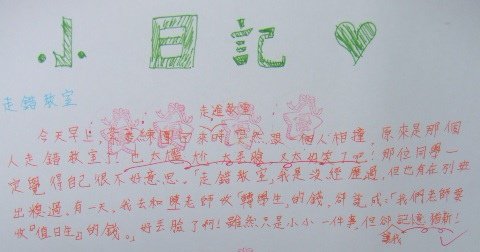 小日記
走錯教室
走進教室
今天早上, 當晨練團 來時突然跟一個人相撞,原來是那個
人走錯教室了!也太尷尬、太丟臉、又太好笑了吧!那位同學一
定覺得自己很不好意思。「走錯教室」我是沒經歷過,但也有在別班
出糗過,有一天,我去和陳老師收「轉學生」的錢,卻說成:「我們老師要
收『值日生』的錢。」好丟臉了啊!雖然只是小小一件事,但卻記憶猶新!
讓我